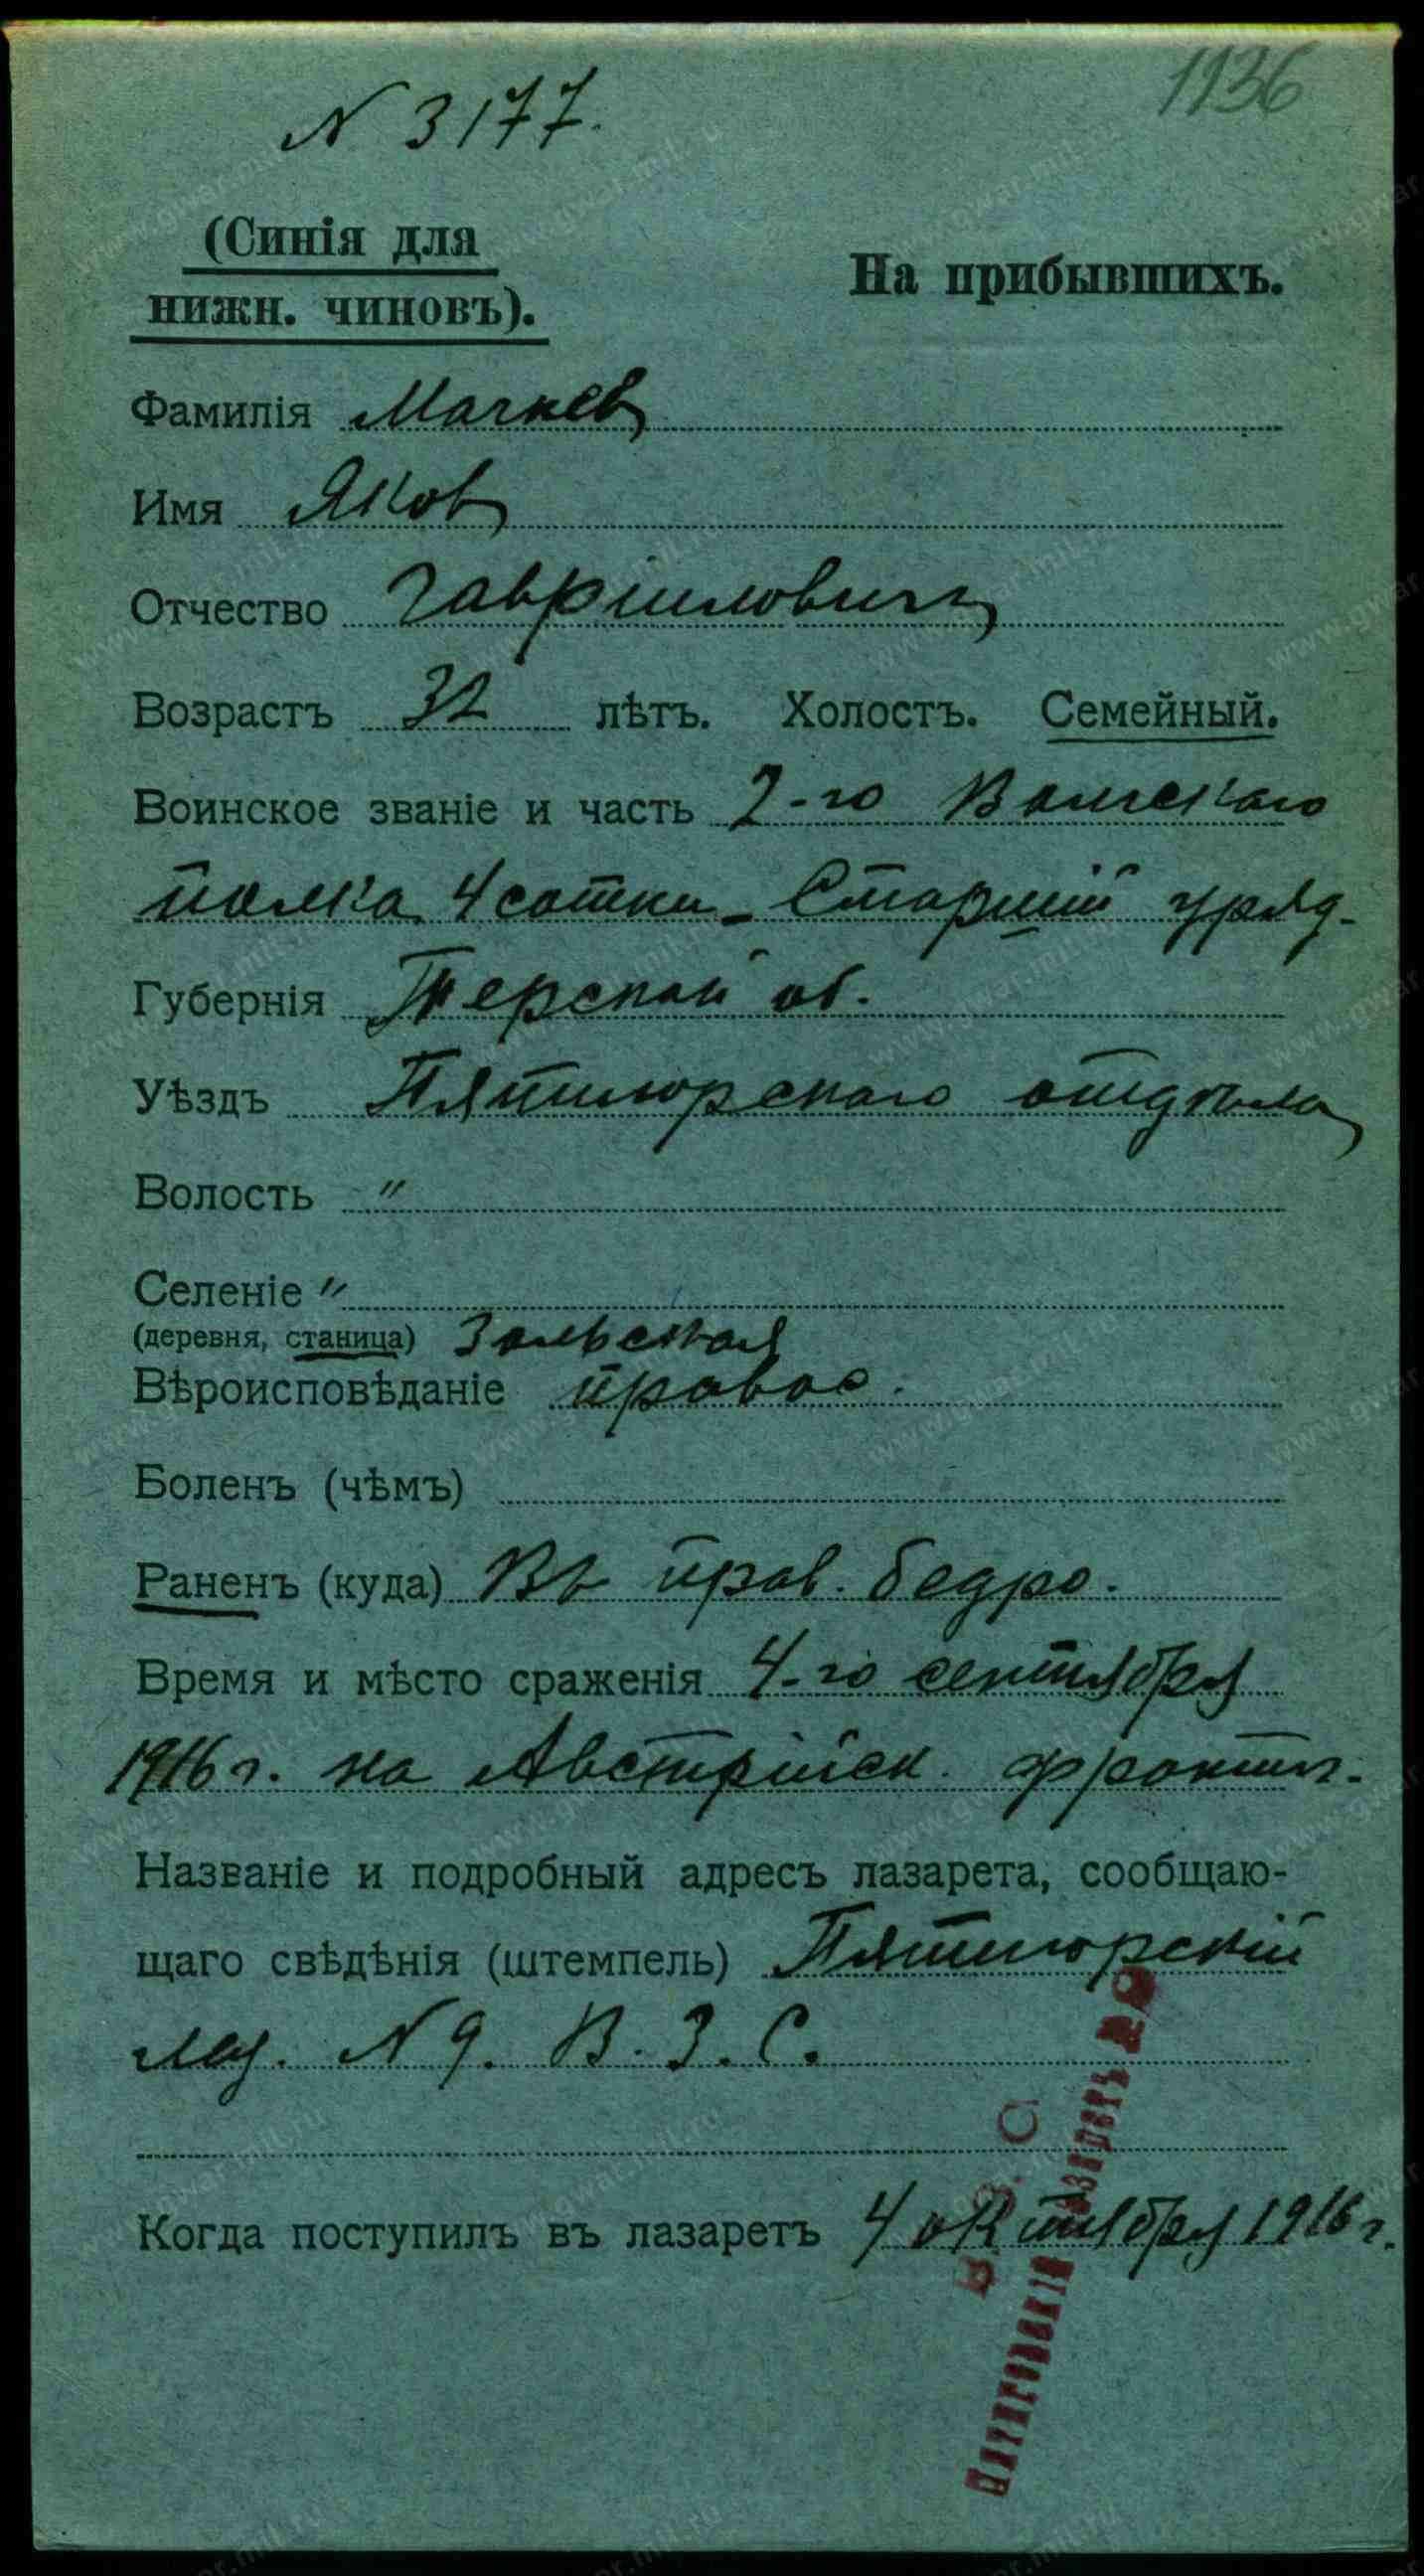 1136
N 3177.
(Синія для
нижн. чиновъ).
На прибывшихъ.
Фамилія Мачнев
Имя Яков
Отчество Гавріиловичъ
Возрастъ 32 лѣтъ. Холостъ. Семейный.
Воинское званіе и часть 2-го Волгскаго
полка 4 сотни - Старшій уряд-
Губернія Терской об.
Уѣздъ Пятигорскаго отдѣла
Волость "
Селеніе "
(деревня, станица) Зольская
Вѣроисповѣданіе правос.
Боленъ (чѣмъ)
Раненъ (куда) Въ прав. бедро.
Время и мѣсто сраженія 4-го сентября
1916 г. на Австрійск. фронтѣ.
Названіе и подробный адресъ лазарета, сообщаю-
щаго свѣдѣнія (штемпель) Пятигорскій
лаз. N 9. В. З. С.
Когда поступилъ въ лазаретъ 4 октября 1916 г.
В. З. С.
Пятигорскій лазаретъ №9
www.gwar.mil.ru